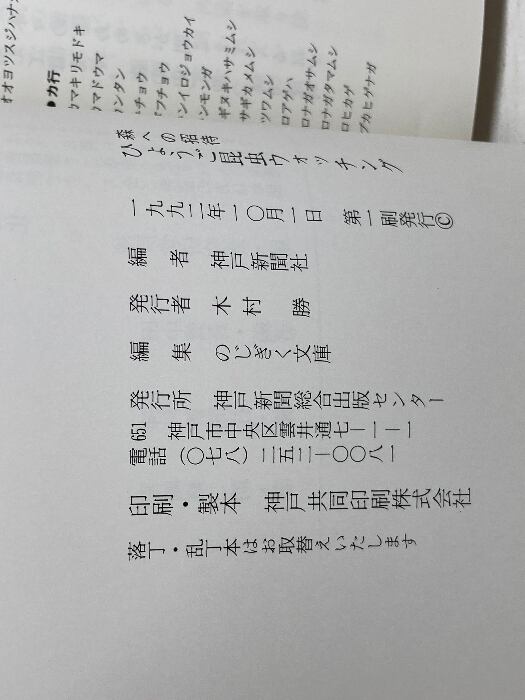 オオヨツスジハナ
▶カ行
カマキリモドキ
マドウマ
ンタン
チョウ
フチョウ
ンイロジョウカイ
ンモンガ
ギヌキハサミムシ
サギカメムシ
ツワムシ
ロアゲハ
ロナガオサムシ
ロナガタマムシ
ロヒカゲ
ブカヒゲナガ
森への招待
ひょうご昆虫ウォッチング
一九九二年一〇月一日　第一刷発行©
編　者　神戸新聞社
発行者　木村　勝
編　集　のじぎく文庫
発行所　神戸新聞総合出版センター
651　神戸市中央区雲井通七―一―一
電話（〇七八）二五二―〇〇八一
印刷・製本　神戸共同印刷株式会社
落丁・乱丁本はお取替えいたします